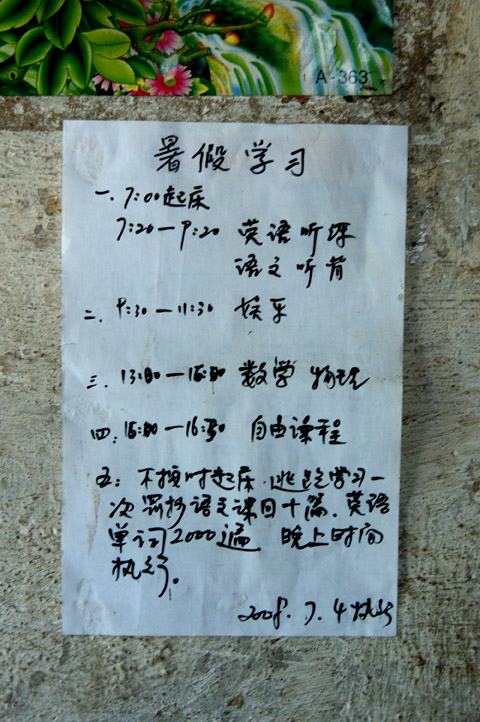 A-363
暑假学习
一、7:00起床
7:20—9:20 英语听
语文听背
二、9:30—11:30 娱乐
三、13:00—15:00 数学 物理
四、15:00—16:30 自由课程
五：不按时起床、逃跑学习一
次罚抄语文课目十篇、英语
单词2000遍 晚上时间
执行。
2008.7.4执行